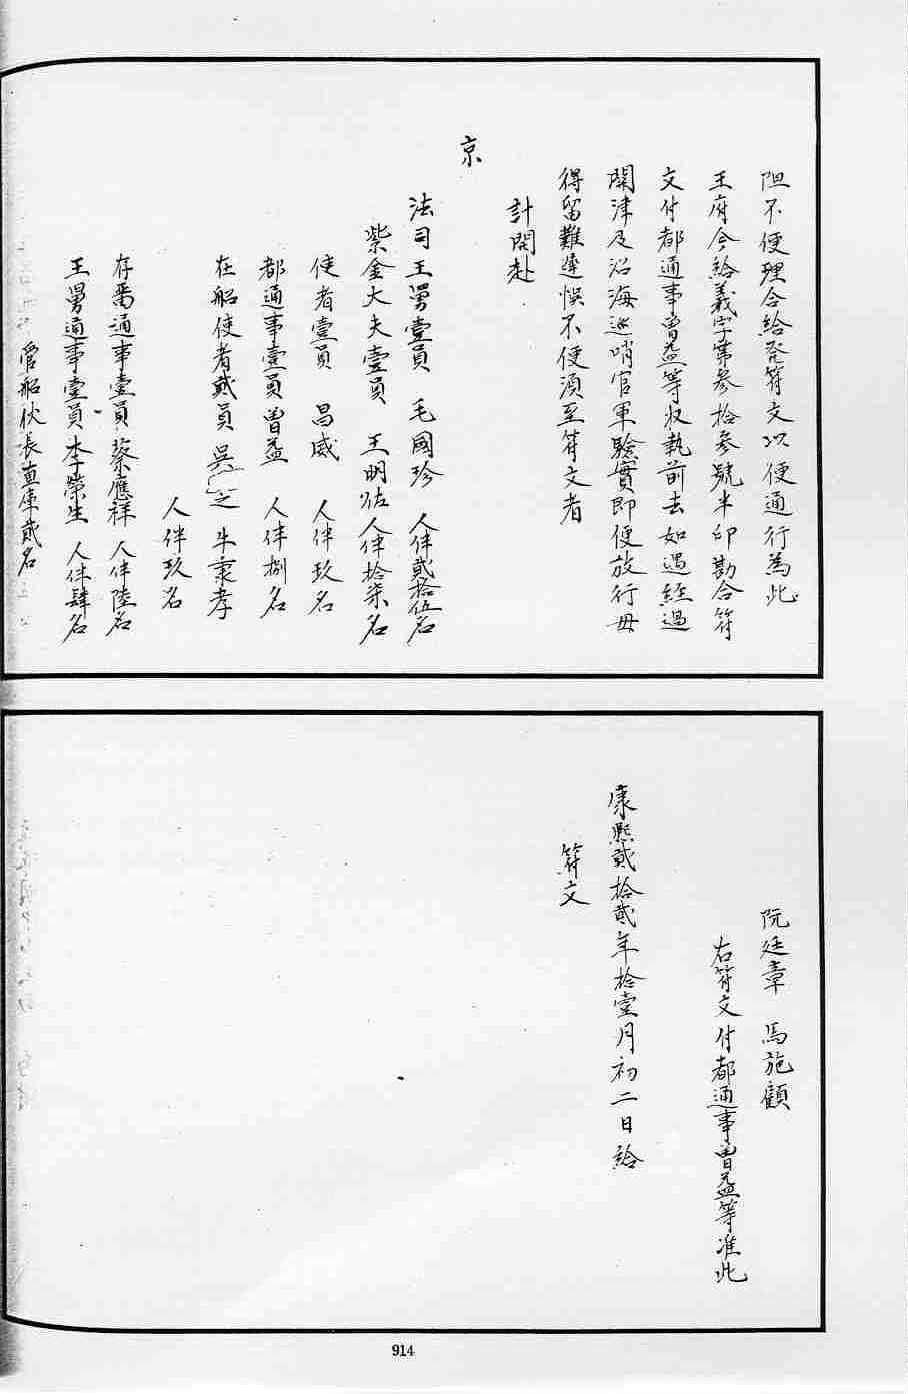 阻不便理合給發符文以便通行為此
王府今給義字第參拾參號半印勘合符
文付都通事曽益等收執前去如遇經過
關津及沿海巡哨官軍驗實即便放行毋
得留難遲悞不便須至符文者
計開赴
京
法司王舅壹員 毛國珍 人伴貳拾伍名
紫金大夫壹員 王明佐 人伴拾柒名
使者壹員 昌威 人伴玖名
都通事壹員曽益 人伴捌名
在船使者貳員 吳 芝 牛秉孝
人伴玖名
存畱通事壹員 蔡應祥 人伴陸名
王舅通事壹員 李榮生 人伴肆名
管船伙長直庫貳名
阮廷章 馬施顧
右符文付都通事曽益等准此
康熙貳拾貳年拾壹月初二日給
符文
914